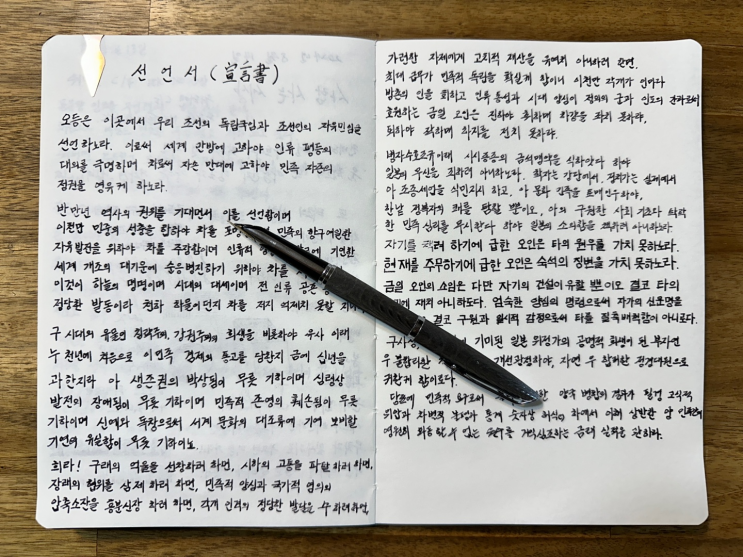 선언서(宣言書)
오등은 이곳에서 우리 조선의 독립국임과 조선인의 자유민임을
선언하노라. 이로써 세계 만방에 고하야 인류 평등의
대의를 극명하며 차로써 자손 만대에 고하야 민족 자존의
정권을 영유케 하노라.
반만년 역사의 권위를 기대면서 이를 선언함이며
이천만 민중의 성충을 합하야 차를 민족의 항구여일한
자유발전을 위하야 차를 주장함이며 인류적 기인한
세계 개조의 대기운에 순응병진하기 위하야 차를
이것이 하늘의 명명이며 시대의 대세이며 전 인류 공존
정당한 발동이라 천하 하물이던지 차를 저지 억제치 못할지
구시대의 유물인 침략주의, 강권주의의 희생을 비롯하야 유사 이래
누 천년에 처음으로 이민족 겸제의 통고를 당한지 금에 십년을
과한지라 아 생존권의 박상됨이 무릇 기하이며 심령상
발전의 장애됨이 무릇 기하이며 민족적 존영의 훼손됨이 무릇
기하이며 신예와 독창으로써 세계 문화의 대조류에 기여 보비할
기연의 유실함이 무릇 기하이뇨.
희라! 구래의 억울을 선창하려 하면, 시하의 고통을 파탈하려 하면,
장래의 협위를 삼제하려 하면, 민족적 양심과 국가적 염의의
압축소잔을 흥분신장 하려 하면, 각개 인격의 정당한 발달을 수하려 하면,
가련한 자제에게 고치적 재산을 유여치 아니하려 하면,
최대 급무가 민족적 독립을 확실케 함이니 이천만 각개가 인마다
방촌의 인을 회하고 인류 통성과 시대 양심이 정의의 군과 인도의 간과로써
호원하는 금일 오인은 진하야 취하매 하강을 좌치 못하랴,
퇴하야 작하매 하지를 전치 못하랴.
병자수호조규이래 시시종종의 금석맹약을 식하얏다 하야
일본의 무신을 죄하려 아니하노라. 학자는 강단에서, 정치가는 실제에서
아 조종세업을 식민지시 하고, 아 문화 민족을 토매인우하야,
한낫 정복자의 쾌를 탐할 뿐이오, 아의 구원한 사회 기초와 탁락
한 민족 심리를 무시한다 하야 일본의 소의함을 책하려 아니하노라
자기를 책려하기에 급한 오인은 타의 원우를 가치 못하노라.
현재를 주무하기에 급한 오인은 숙석의 징변을 가치 못하노라.
금일 오인의 소임은 다만 자기의 건설이 유할 뿐이오 결코 타의
재치 아니하도다. 엄숙한 양심의 명령으로써 자가의 신운명을
결코 구원과 일시적 감정으로써 타를 질축배척함이 아니로다.
구사상, 기미된 일본 위정가의 공명적 희생이 된 부자연
우 불합리한 개선광정하야, 자연 우 합리한 정경대원으로
귀환케 함이로다.
당초에 민족적 요구로써 양국 병합의 결과가 필경 고식적
위압과 차별적 불평과 통계 숫자상 허식의 하에서 이해 상반한 양 민족간에
영원히 화동할 수 없는 원구를 거익심조하는 금래 실적을 관하라.